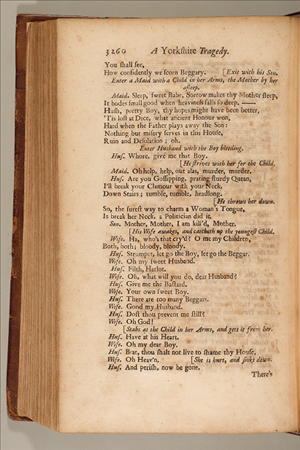 3260 A Yorkshire Tragedy.
You shall see,
How confidently we scorn Beggary. [Exit with his Son.
Enter a Maid with a Child in her Arms, the Mother by her
asleep.
Maid. Sleep, sweet Babe, Sorrow makes thy Mother sleep,
It bodes small good when heaviness falls so deep, ——
Hush, pretty Boy, thy hopes might have been better,
'Tis lost at Dice, what ancient Honour won,
Hard when the Father plays away the Son:
Nothing but misery serves in this House,
Ruin and Desolation; oh.
Enter Husband with the Boy bleeding.
Hus. Whore, give me that Boy.
[He strives with her for the Child.
Maid. Oh help, help, out alas, murder, murder.
Hus. Are you Gossipping, prating sturdy Quean,
I'll break your Clamour with your Neck,
Down Stairs; tumble, tumble, headlong.
[He throws her down.
So, the surest way to charm a Woman's Tongue,
Is break her Neck, a Politician did it.
Son. Mother, Mother, I am kill'd, Mother.
[His Wife awakes, and catcheth up the youngest Child.
Wife. Ha, who's that cry'd? O me my Children,
Both, both; bloody, bloody.
Hus. Strumpet, let go the Boy, let go the Beggar.
Wife. Oh my sweet Husband.
Hus. Filth, Harlot.
Wife. Oh, what will you do, dear Husband?
Hus. Give me the Bastard.
Wife. Your own sweet Boy.
Hus. There are too many Beggars.
Wife. Good my Husband.
Hus. Dost thou prevent me still?
Wife. Oh God!
[Stabs at the Child in her Arms, and gets it from her.
Hus. Have at his Heart.
Wife. Oh my dear Boy.
Hus. Brat, thou shalt not live to shame thy House,
Wife. Oh Heav'n. [She is hurt, and sinks down.
Hus. And perish, now be gone.
There's